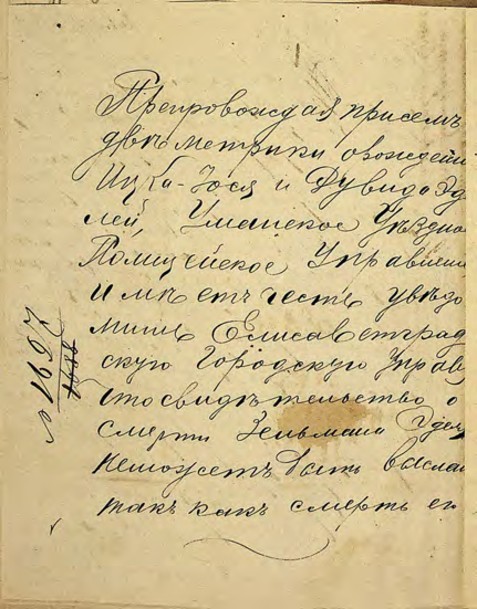 Препровождая присемъ
двѣ метрики о рождении
Ицка-Йося и Дувида Эд
лей, Уманское Уѣздно
Полицейское Управлени
имѣетъ честь увѣдо
мить Елисаветград
скую Городскую Управ
что свидѣтельство о
смерти Зельмана Эдел
неможетъ быть выслан
такъ какъ смерть ег